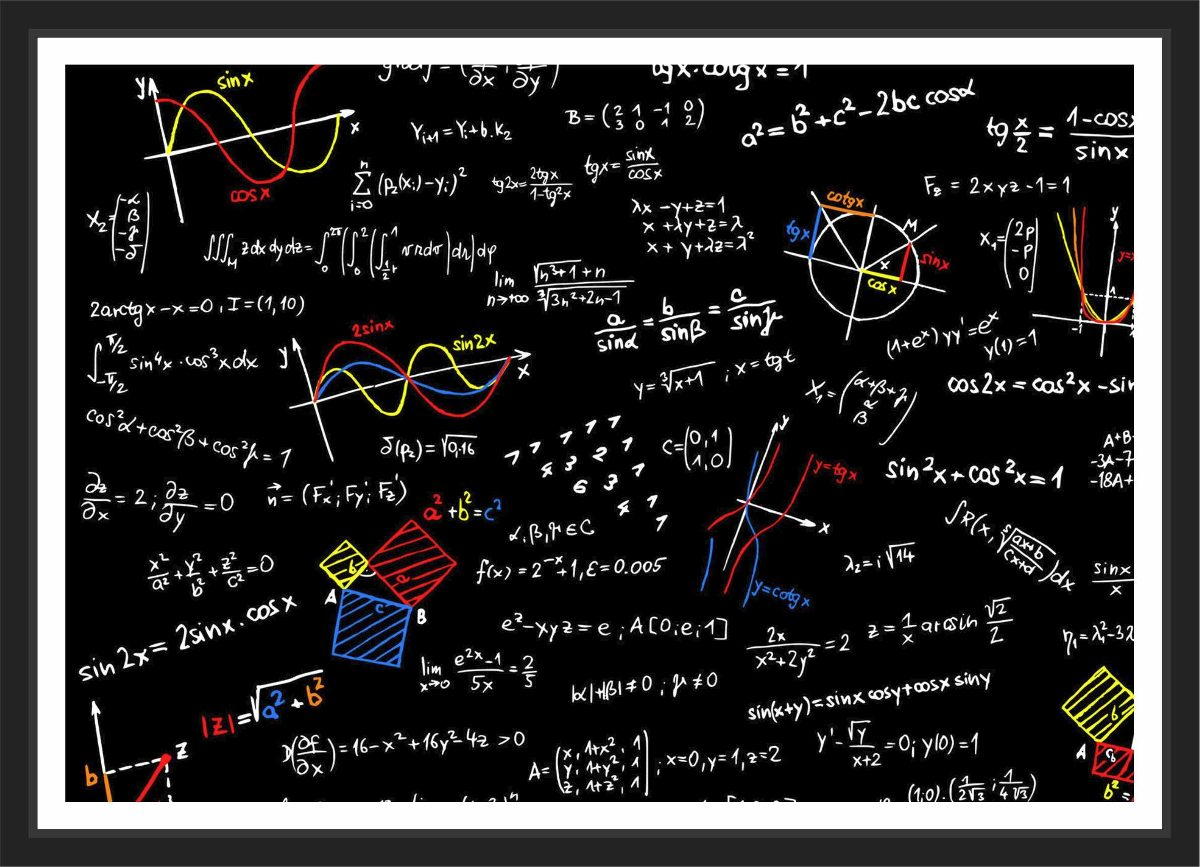 y
sin x
x
cos x
tg x · cotg x = 1
Y_{i+1} = Y_i + b · K_2
B = (2 1 -1 0
3 0 1 2)
a² = b² + c² - 2bc cosα
tg x/2 = 1-cosx/sinx
∑_{i=0}^{n} (p_2(x_i) - y_i)²
tg2x = 2tgx/1-tg²x
tgx = sinx/cosx
F_z = 2xyz-1=1
X_2 = (-α
β
-γ
-δ)
λx - y + z = 1
x + λy + z = λ
x + y + λz = λ²
cotg x
tg x
M
x
sin x
cos x
X_1 = (2p
-p
0)
y
∭_M z dx dy dz =
lim_{n→+∞} √(n³+1) + n / ∛(3n²+2n-1)
2arctg x - x = 0 , I = (1, 10)
a/sinα = b/sinβ = c/sinγ
(1+e^x) yy' = e^x
y(1) = 1
∫_{-π/2}^{π/2} sin⁴x · cos³x dx
y
2sinx
sin2x
x
y = ∛(x+1) ; x = tg t
X_1 = (α+β+γ
α
β)
cos2x = cos²x - sin
cos²α + cos²β + cos²γ = 1
δ(p_2) = √0,16
C = (0, 1
1, 0)
y
y = tg x
x
y = cotg x
sin²x + cos²x = 1
A+B
-3A-7
-18A+
∂z/∂x = 2 ; ∂z/∂y = 0
n⃗ = (F_x'; F_y'; F_z')
a² + b² = c²
α, β, γ ∈ C
∫R(x, ⁵√(ax+b/cx+d)) dx
x²/a² + y²/b² + z²/c² = 0
b
a
c
A
B
f(x) = 2^{-x} + 1, ε = 0.005
λ_2 = i√14
sinx/x
sin 2x = 2 sin x · cos x
e^z - xyz = e ; A[0; e; 1]
2x/x²+2y² = 2
z = 1/x arcsin √2/2
η_1 = λ_1² - 3λ
lim_{x→0} e^{2x}-1/5x = 2/5
|α|+|β| ≠ 0 ; γ ≠ 0
sin(x+y) = sinx cosy + cosx siny
|z| = √(a² + b²)
b
z
(∂f/∂x) = 16 - x² + 16y² - 4z > 0
A = (x, 1+x², 1
y, 1+y², 1
z, 1+z², 1) ; x=0, y=1, z=2
y' - √y/x+2 = 0; y(0) = 1
(1;0) · (1/2√3 ; 1/4√3)
b
A
b² =